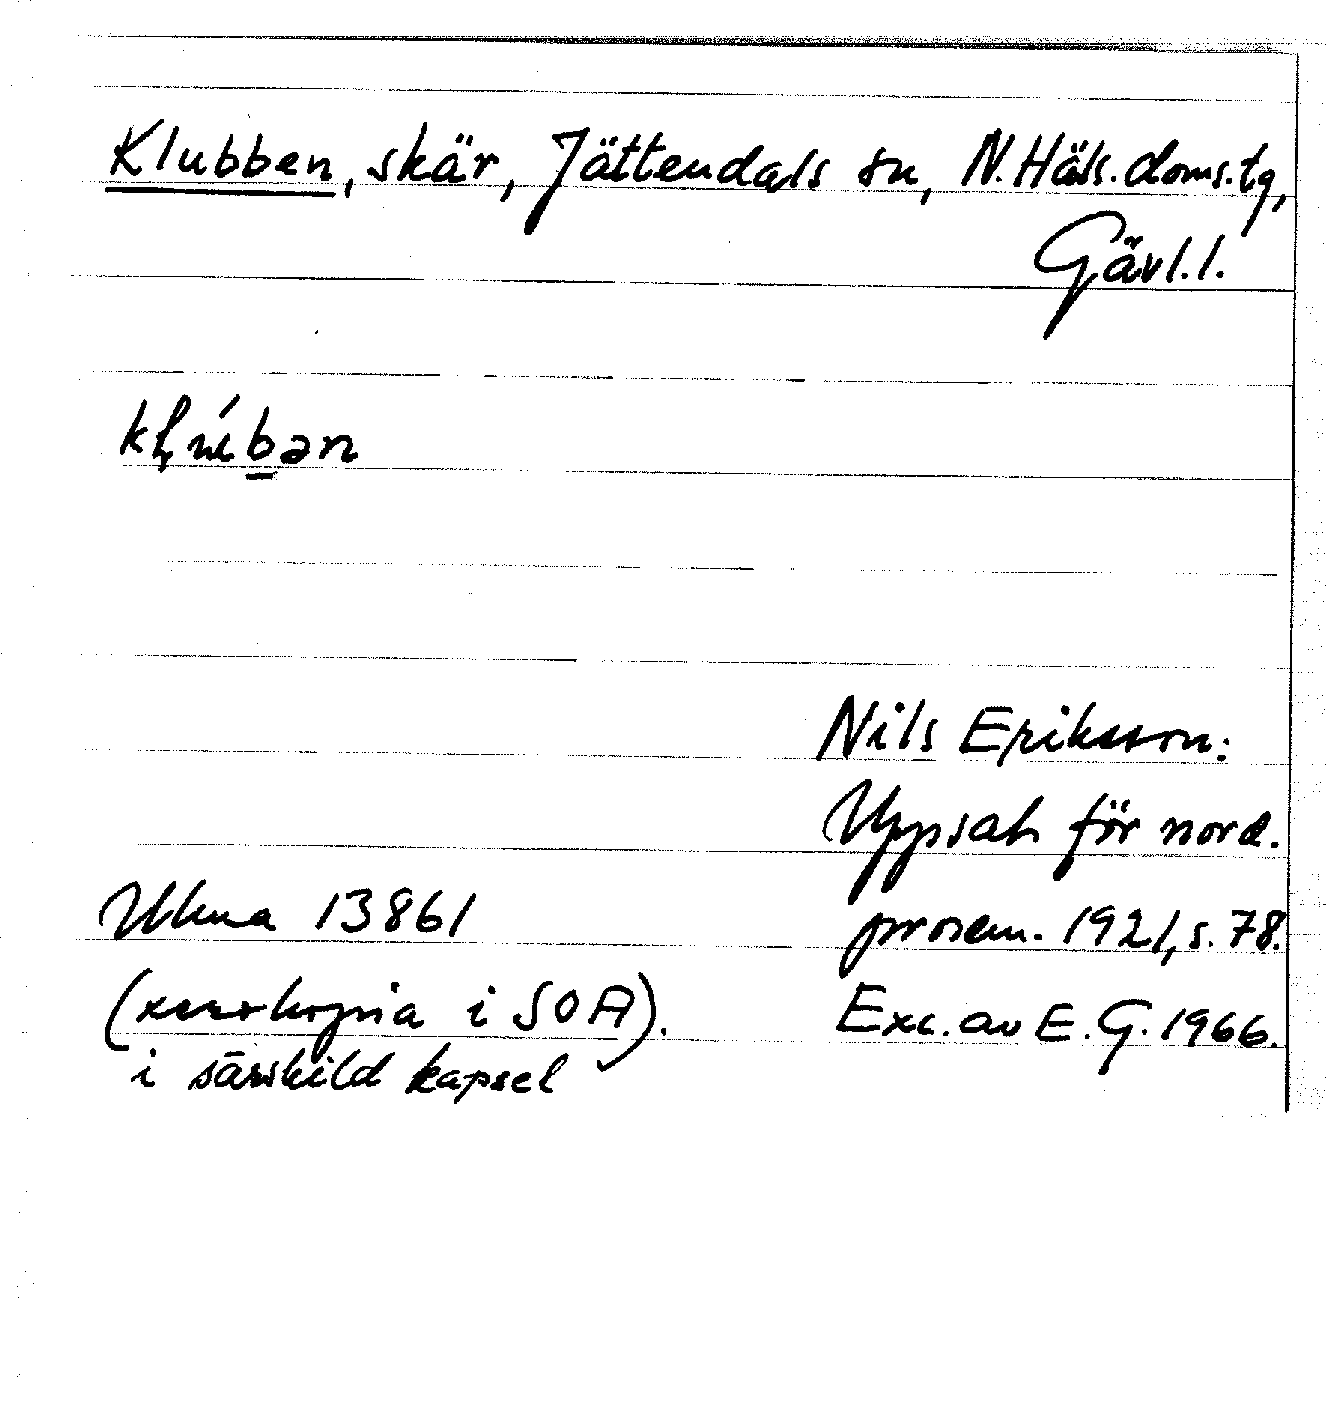 Klubben, skär, Jättendals sn, N. Häls. doms. tg,
Gävl. l.
Nils Eriksson:
Uppsats för nord.
Ulma 13861
prosem. 1921, s. 78.
(xerokopia i SOA).
Exc. av E. G. 1966.
i särskild kapsel